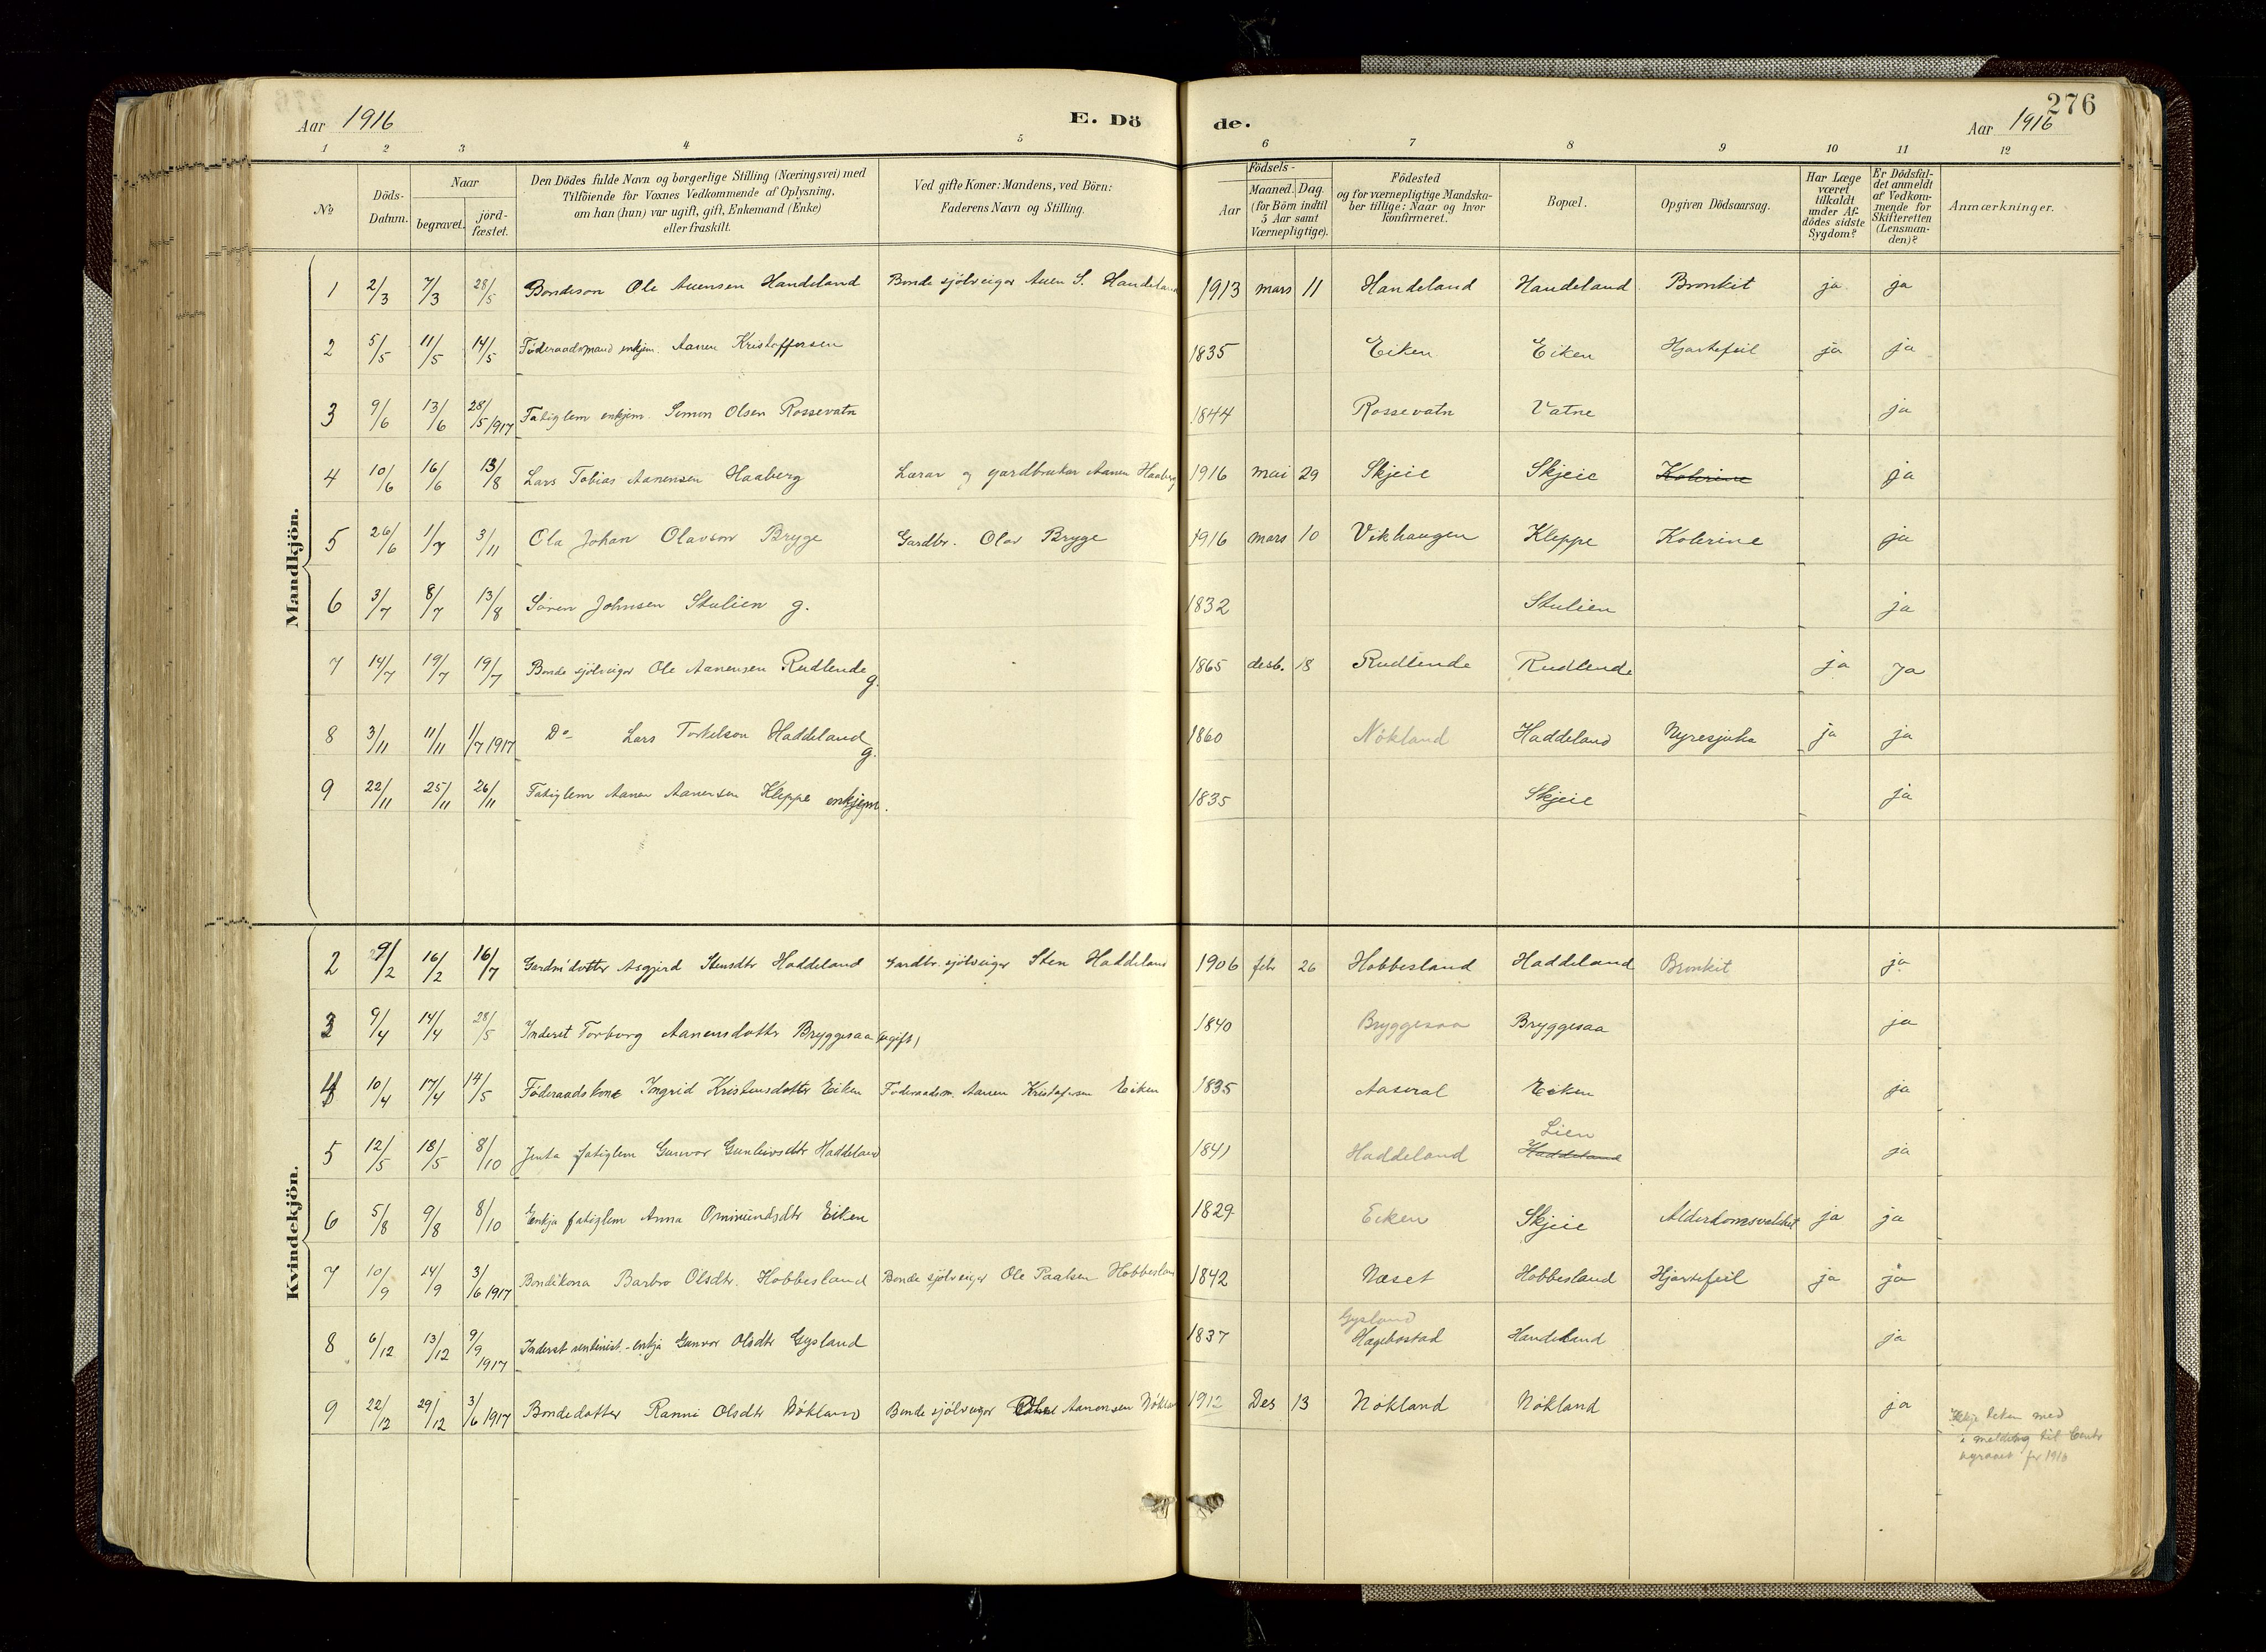 276
Aar 1916 E. Dö de. Aar 1916
1 2 3 4 5 6 7 8 9 10 11 12
№
Döds-Datum.
Naar
begravet.
jord-fæstet.
Den Dödes fulde Navn og borgerlige Stilling (Næringsvei) med
Tilföiende for Voxnes Vedkommende af Oplysning,
om han (hun) var ugift, gift, Enkemand (Enke)
eller fraskilt.
Ved gifte Koner: Mandens, ved Börn:
Faderens Navn og Stilling.
Födsels-
Aar
Maaned. Dag.
(for Börn indtil
5 Aar samt
Værnepligtige).
Födested
og for værnepligtige Mandska-
ber tillige: Naar og hvor
konfirmeret.
Bopæl.
Opgiven Dödsaarsag.
Har Læge
været
tilkaldt
under Af-
dödes sidste
Sygdom?
Er Dödsfal-
det anmeldt
af Vedkom-
mende for
Skifteretten
(Lensman-
den)?
Anmærkninger.
Mandkjön.
1 2/3 7/3 28/5 Bondeson Ole Auensen Handeland Bonde sjölveigar Auen S. Handeland 1913 mars 11 Handeland Handeland Bronkit ja ja
2 5/5 11/5 14/5 Föderaadsmand enkjem. Aanen Kristoffersen 1835 Eiken Eiken Hjartefeil ja ja
3 9/6 13/6 28/5 1917 Fatiglem enkjem. Simon Olsen Rossevatn 1844 Rossevatn Vatne ja
4 10/6 16/6 13/8 Lars Tobias Aanensen Haaberg Lærar og gardbrukar Aanen Haaberg 1916 mai 29 Skjeie Skjeie Kolerine ja
5 26/6 1/7 3/11 Ola Johan Olavson Bryge Gardbr. Olav Bryge 1916 mars 10 Vikhaugen Kleppe Kolerine ja
6 3/7 8/7 13/8 Sören Johnsen Stulien g. 1832 Stulien ja
7 14/7 19/7 19/7 Bonde sjölveigar Ole Aanensen Rudlende g. 1865 desb. 18 Rudlende Rudlende ja ja
8 3/11 11/11 1/7 1917 Do Lars Torkelson Haddeland g. 1860 Nökland Haddeland Nyresjuka ja ja
9 22/11 25/11 26/11 Fatiglem Aanen Aanensen Kleppe enkjem. 1835 Skjeie ja
Kvindekjön.
2 9/2 16/2 16/7 Gardm'dotter Asgjerd Stensdtr Haddeland Gardbr. sjölveigar Sten Haddeland 1906 febr 26 Hobbesland Haddeland Bronkit ja
3 9/4 14/4 28/5 Inderst Torborg Aanensdotter Bryggesaa (ugift) 1840 Bryggesaa Bryggesaa ja
4 10/4 17/4 14/5 Föderaadskone Ingrid Kristensdotter Eiken Föderaadsm. Aanen Kristofersen Eiken 1835 Aaseral Eiken ja
5 12/5 18/5 8/10 Jenta fatiglem Gunvor Gunleivsdtr Haddeland 1841 Haddeland Haddeland Lien ja
6 5/8 9/8 8/10 Enkja fatiglem Anna Ommundsdtr Eiken 1829 Eiken Skjeie Alderdomsveikhet ja ja
7 10/9 14/9 3/6 1917 Bondekona Barbro Olsdtr. Hobbesland Bonde sjölveigar Ole Paalsen Hobbesland 1842 Næset Hobbesland Hjartefeil ja ja
8 6/12 13/12 9/9 1917 Inderst enkja Gunvor Olsdtr Gysland 1837 Gysland Hægebostad Handeland ja
9 22/12 29/12 3/6 1917 Bondedotter Ranni Olsdtr Nökland Bonde sjölveigar Aanensen Nökland 1912 Des 13 Nökland Nökland ja
Ikkje teken med
i melding til
for 1916